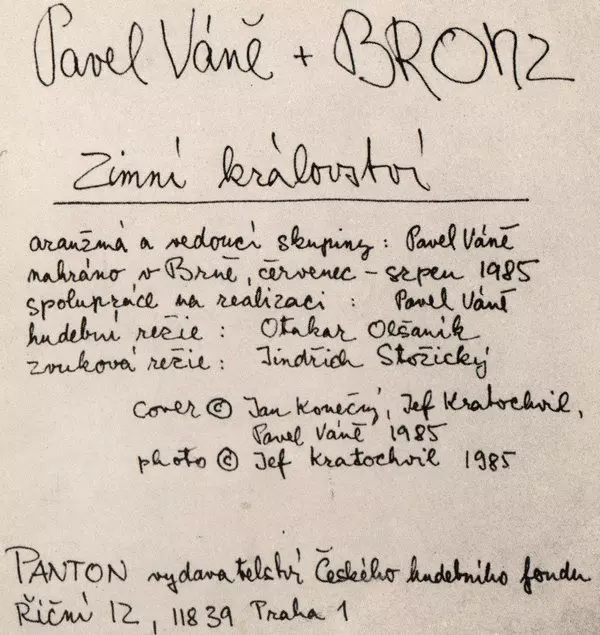 Pavel Váně + BRONZ
Zimní království
aranžmá a vedoucí skupiny : Pavel Váně
nahráno v Brně, červenec - srpen 1985
spolupráce na realizaci : Pavel Váně
hudební režie : Otakar Olšaník
zvuková režie : Jindřich Stožický
cover © Jan Konečný, Jef Kratochvil,
Pavel Váně 1985
photo © Jef Kratochvil 1985
PANTON vydavatelství Českého hudebního fondu
Říční 12, 118 39 Praha 1